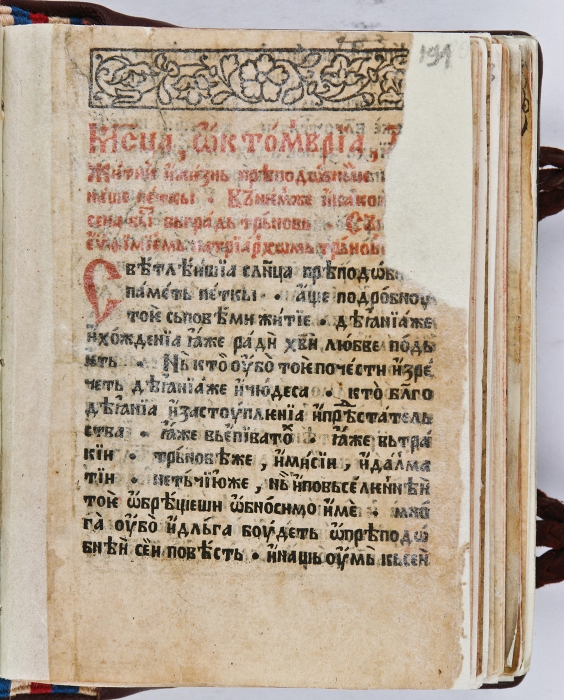 191
Мⷭ҇ца, ѡ҆кто́мврїа,
Житїе и҆жизнь прѣподѡбнїе
наше петкы · Въ немже и҆ како
сена бы̀ вьградь трьновь · Съ
еѵѳи́мїемь патрїа́рхѡмь трьновь
Свѣтлѣ́ишїа сл҃нца прѣподѡ́бн
па́меть пе́ткы · а҆ще подро́бноу
тоѥ сьповѣ́ми жи́тїе · дѣа҆нїа́же
и҆схожденїа ꙗ҆́же ра́ди хв҃и любве подь
ѥть · Нь̀ кто̀ оу҆́бо тоѥ почести и҆зре
четь дѣа҆нїа́же и҆чюдеса · кто̀ бл҃го
дѣа҆́нїа и҆застоупле́нїа и҆прѣ́статель
ства · ꙗ҆́же вье҆пїва́тѡ · ꙗ҆́же вьтра́
кїи · трьно́вѣже , и҆ми́сїи , и҆да́лма
тїи · нетьчї́юже , нь̀ и҆повьсе́лѥннѣи
тоѥ ѡ҆брѣ́щеши ѡ҆бно́симо и҆́ме · мно́
га оу҆́бо и҆дль́га боу́деть ѡ҆прѣподѡ́
бнѣи сеи повѣ́сть · и҆нашь оу҆́мь кьсеи